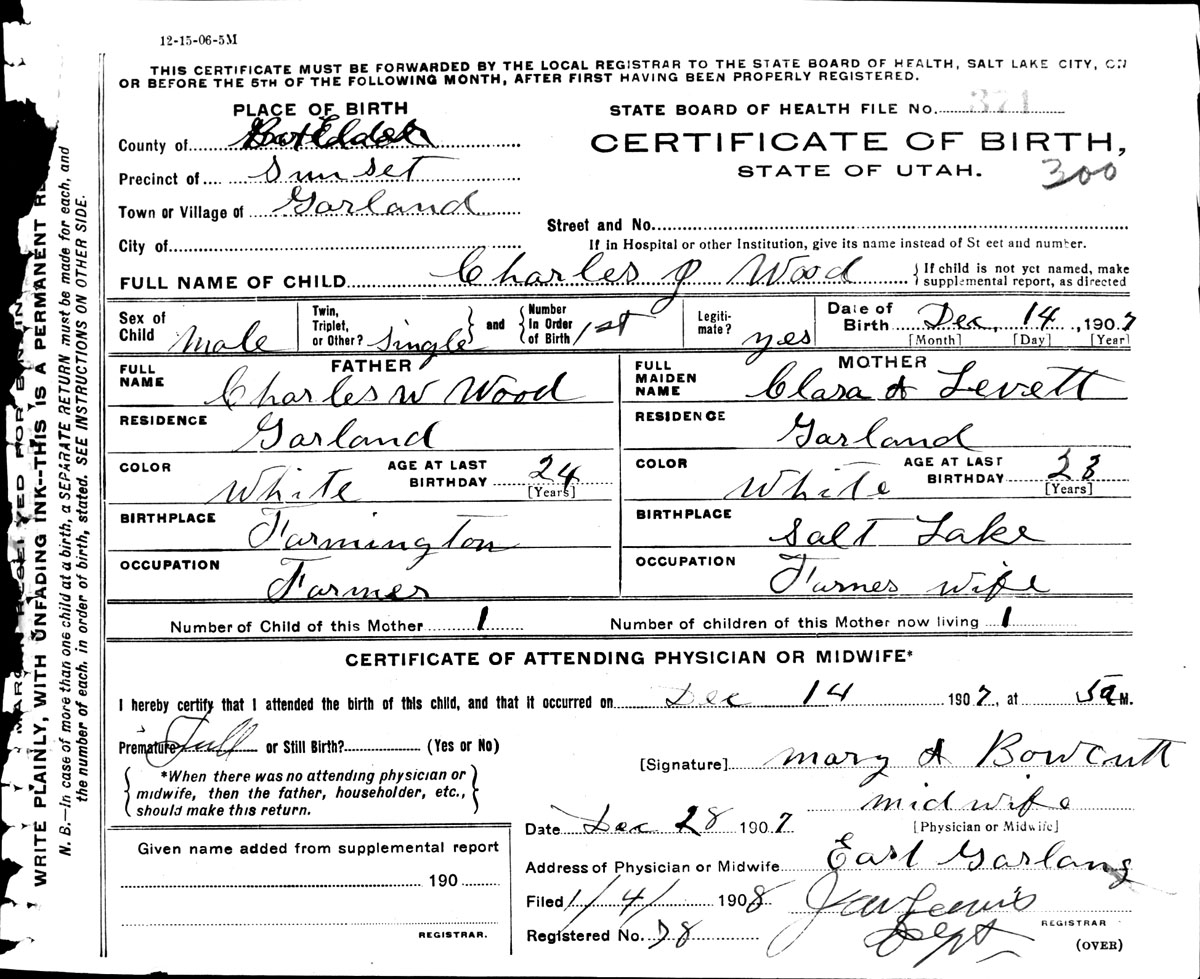 12-15-06-5M
THIS CERTIFICATE MUST BE FORWARDED BY THE LOCAL REGISTRAR TO THE STATE BOARD OF HEALTH, SALT LAKE CITY, ON
OR BEFORE THE 5TH OF THE FOLLOWING MONTH, AFTER FIRST HAVING BEEN PROPERLY REGISTERED.
PLACE OF BIRTH
County of Box Elder
Precinct of Sunset
Town or Village of Garland
City of
STATE BOARD OF HEALTH FILE No. 371
CERTIFICATE OF BIRTH,
STATE OF UTAH.
300
Street and No.
If in Hospital or other Institution, give its name instead of St eet and number.
FULL NAME OF CHILD Charles J Wood { If child is not yet named, make
supplemental report, as directed
Sex of
Child Male
Twin,
Triplet,
or Other? Single } and { Number
in Order
of Birth 1st
Legiti-
mate? yes
Date of
Birth Dec, 14, 1907
[Month] [Day] [Year]
FATHER
FULL
NAME Charles W Wood
RESIDENCE Garland
COLOR White AGE AT LAST
BIRTHDAY 24
[Years]
BIRTHPLACE Farmington
OCCUPATION Farmer
MOTHER
FULL
MAIDEN
NAME Clara A Levett
RESIDENCE Garland
COLOR White AGE AT LAST
BIRTHDAY 23
[Years]
BIRTHPLACE Salt Lake
OCCUPATION Farmes wife
Number of Child of this Mother 1 Number of children of this Mother now living 1
CERTIFICATE OF ATTENDING PHYSICIAN OR MIDWIFE*
I hereby certify that I attended the birth of this child, and that it occurred on Dec 14 1907, at 5a M.
Premature Full or Still Birth? (Yes or No)
{ *When there was no attending physician or
midwife, then the father, householder, etc.,
should make this return. }
[Signature] Mary A Bowcutt
midwife
[Physician or Midwife]
Date Dec 28 1907
Address of Physician or Midwife East Garland
Filed 1/4/ 1908
Registered No. 28
Dept
REGISTRAR
(OVER)
Given name added from supplemental report
190
REGISTRAR.
WRITE PLAINLY, WITH UNFADING INK--THIS IS A PERMANENT RE
N. B.—In case of more than one child at a birth, a SEPARATE RETURN must be made for each, and
the number of each, in order of birth, stated. SEE INSTRUCTIONS ON OTHER SIDE.